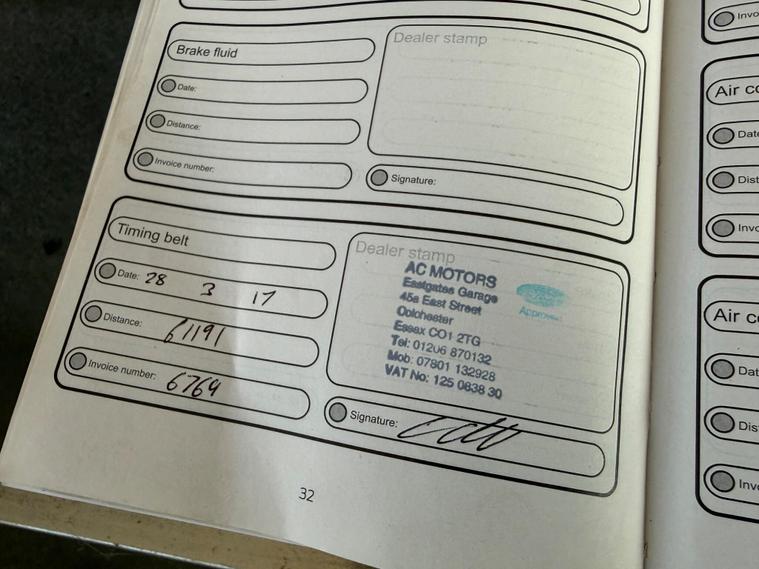 Brake fluid
Date:
Distance:
Invoice number:
Dealer stamp
Signature:
Timing belt
Date: 28 3 17
Distance: 61191
Invoice number: 6769
Dealer stamp
AC MOTORS
Eastgates Garage
45a East Street
Colchester
Essex CO1 2TG
Tel: 01206 870132
Mob: 07801 132928
VAT No: 125 0838 30
Approved
Signature:
32
Invo
Air co
Date
Dist
Invo
Air co
Dat
Dis
Invo